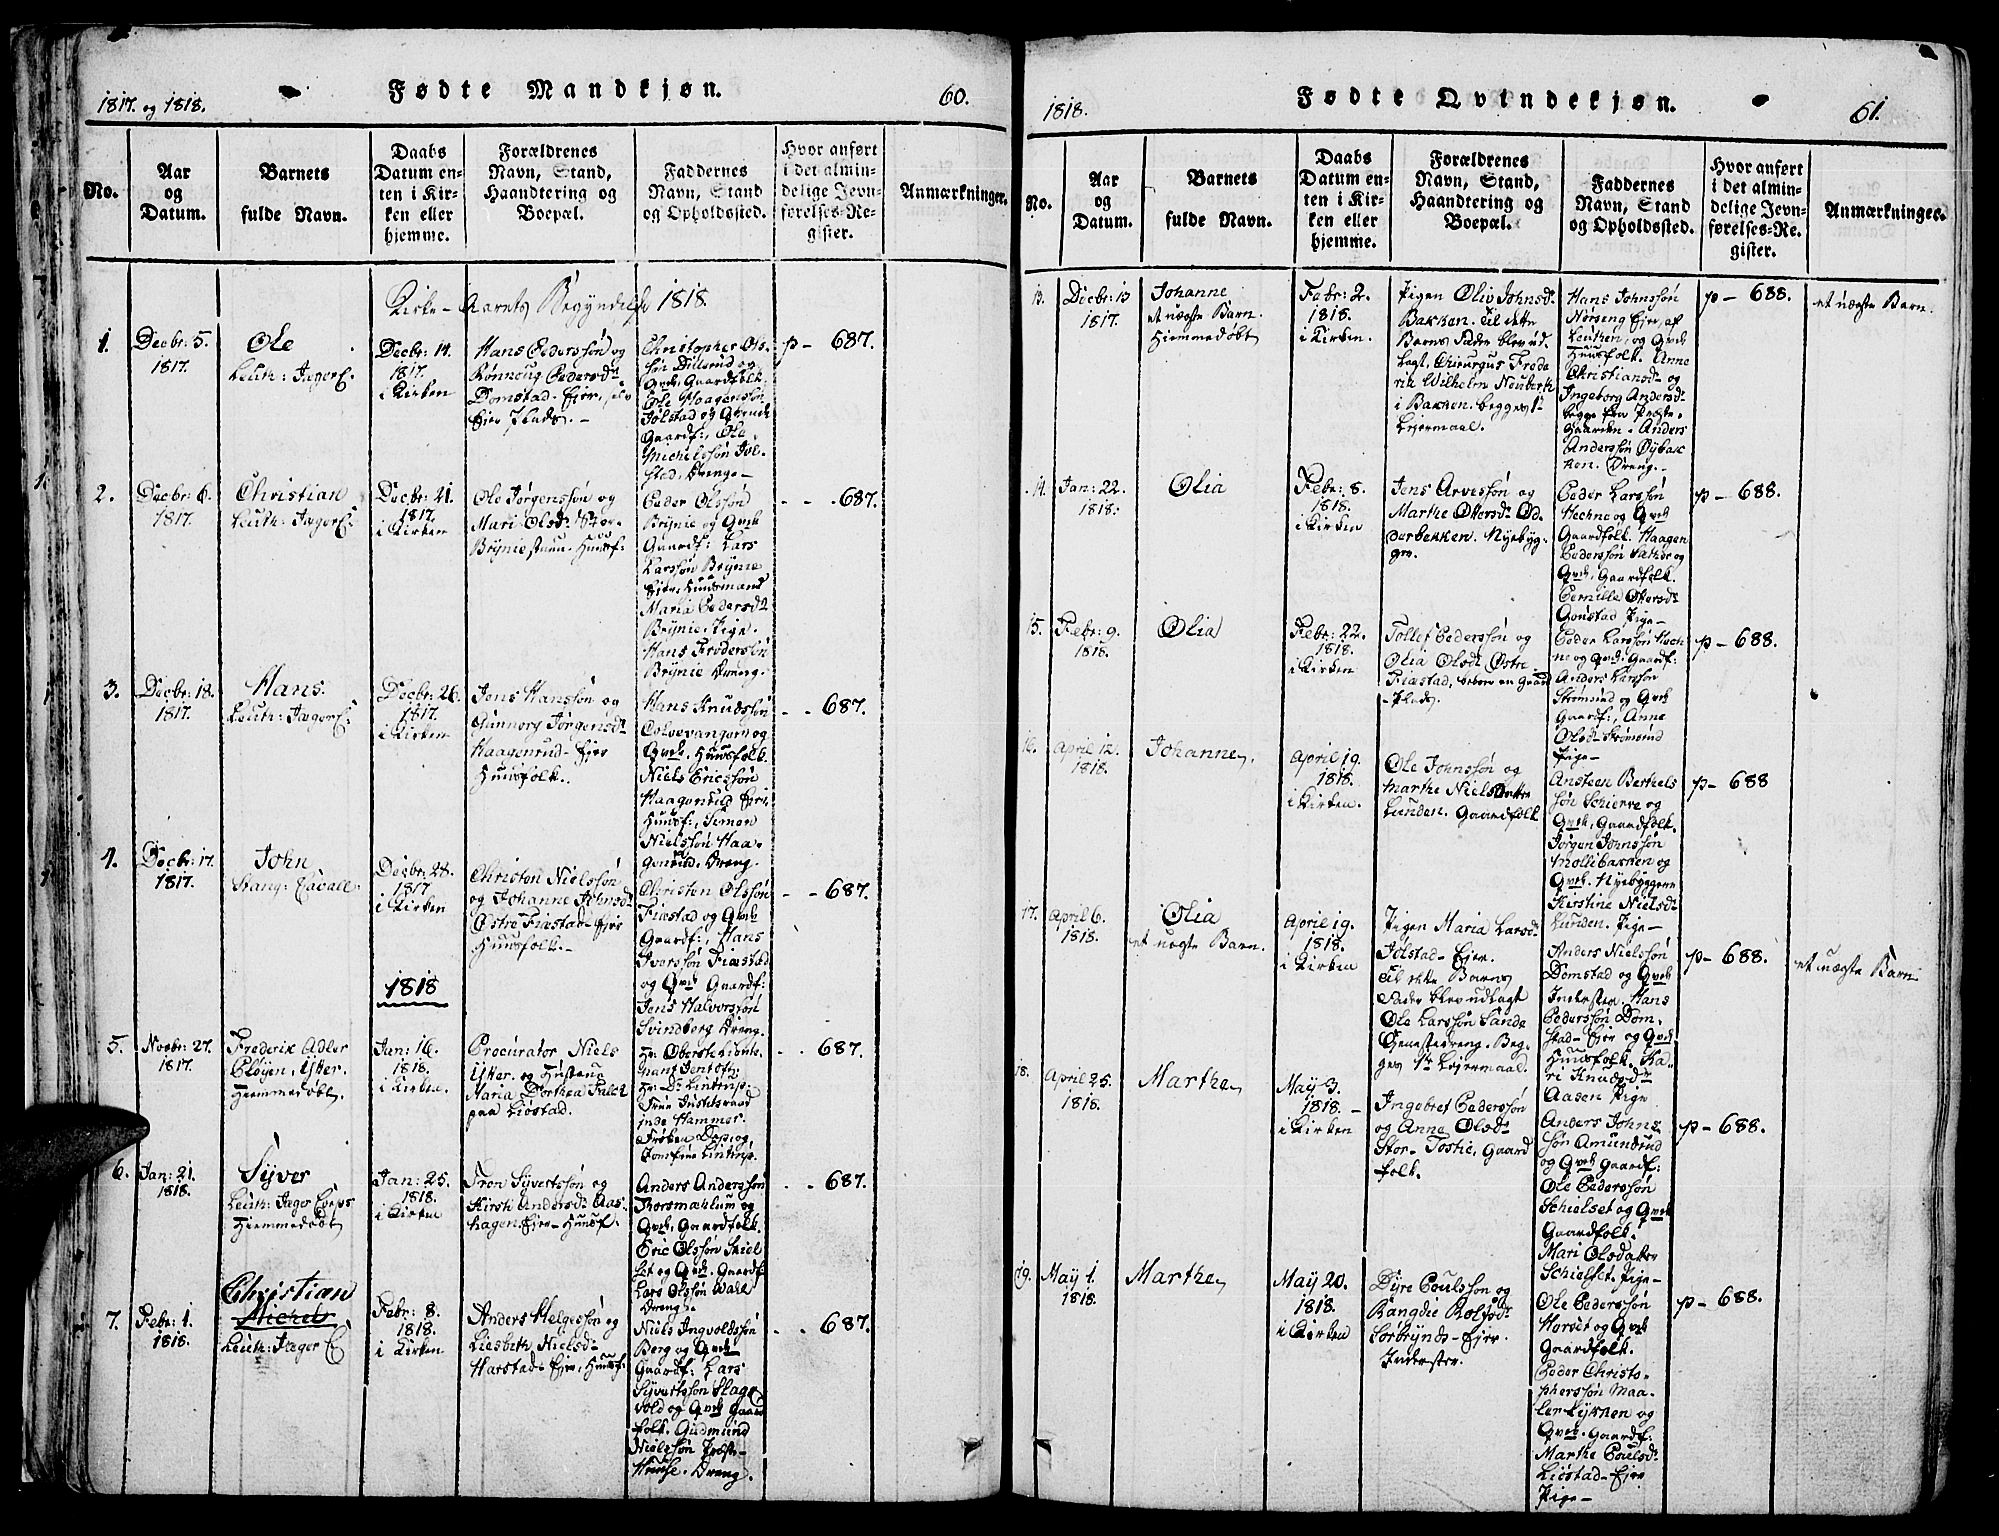 1817. og 1818.
Fødte Mandkjøn.
60.
No.
Aar og Datum.
Barnets fulde Navn.
Daabs Datum enten i Kirken eller hjemme.
Forældrenes Navn, Stand, Haandtering og Boepæl.
Faddernes Navn, Stand og Opholdssted.
Hvor anført i det almindelige Jevnførelses-Register.
Anmærkninger.
Kirke-Aarets Begyndelse 1818.
1.
Decbr: 5.
1817.
Ole
Leuth: Jæger C.
Decbr: 14.
1817.
i Kirken
Hans Pederssøn og
Rønnoug Pedersd:
Domstad-Ejer,
Christopher Ols-
søn Dillerud og
Qvd. Gaardfolk.
Ole Haagenssøn
Jølstad og Qvinde
Gaardf:, Ole
Michelssøn Jøl-
stad, Dreng-
p- 687.
2.
Decbr: 6.
1817.
Christian
Leuth: Jæger C:
Decbr: 21.
1817.
i Kirken
Ole Jørgenssøn og
Mari Olsd:
Brynie
Peder Olssøn
Brynie og Qvd
Gaardf: Lars
Larssøn Brynie
Eier, Huusmand
Maria Pedersd:
Brynie, Pige.
Hans
Brynie Dreng.
- - 687.
3.
Decbr: 18.
1817.
Hans.
Leuth: Jæger C:
Decbr: 26.
1817.
i Kirken
Jens Hanssøn og
Gunnorg Jørgensd:
Haagenrud-Ejer
Huusfolk.
Hans Knudssøn
og
Qvd. Huusfolk.
Niels Ericssøn
Haagenrud Ejer,
Huusf:, Simon
Nielssøn Haa-
genrud, Dreng.
- - 687.
4.
Decbr: 17.
1817.
John
Stang:
Decbr: 28.
1817.
i Kirken
Christen Nielssøn
og Johanne Johnsd:
Østre Fiæstad-Ejer
Huusfolk.-
Christen Olssøn
Fiæstad og Qvd
Gaardf:, Hans
Iverssøn Fiæstad
og Qvd Gaardf:
Jens Halvorssøn
Svinberg Dreng.
- - 687.
1818
5.
Novbr: 27.
1817.
Frederik Adler
Hiemmedøbt.
Jan: 16.
1818.
i Kirken.
Procurator Niels
og Hustrue
Maria Dorthea
paa Liøstad.
- - 687.
6.
Jan: 21.
1818.
Syver
Leuth: Jæger Corps
Hiemmedøbt
Jan: 25.
1818.
i Kirken
Tron Syvertssøn og
Kirsti Andersd: Aas-
hagen Ejer-Huusf:
Anders Anderssøn
Thorsmæhlum og
Qvd, Gaardfolk.
Eric Olssøn
og Qvd. Gaardf:
Lars Olssøn
Dreng.
- - 687.
7.
Febr: 1.
1818.
Christian
Michel
Leuth: Jæger C
Febr: 8.
1818.
i Kirken
Anders Helgessøn og
Liesbeth Nielsd:
Harstad-Ejer, Huusf:
Niels Ingvoldssøn
Berg og Qvd:
Gaardf: Lars
Syvertssøn Slage-
vold og Qvd Gaard
folk. Gudmund
Nielssøn Præste-
Huuse. Dreng.
- - 687.
1818.
Fødte Qvindekjøn.
61.
No.
Aar og Datum.
Barnets fulde Navn.
Daabs Datum enten i Kirken eller hjemme.
Forældrenes Navn, Stand, Haandtering og Boepæl.
Faddernes Navn, Stand og Opholdssted.
Hvor anført i det almindelige Jevnførelses-Register.
Anmærkninger.
13.
Decbr: 13
1817.
Johanne
et uægte Barn.
Hiemmedøbt
Febr: 2.
1818.
i Kirken.
Pigen Oliv Johnsd:
Bakken. Til dette
Barns Fader blev ud-
lagt, Chirurgus Frede
rik Wilhelm
i Bakken. begges 1ste
Lejermaal.
Hans Johnssøn
Nørseng Ejer, af
Leuthen, og Qvd
Huusfolk. Anne
Christiansd: og
Ingeborg Andersd:
begge fra Præste-
Gaarden. Anders
Anderssøn Øybak
ken. Dreng.-
p- 688.
et uægte Barn.
14.
Jan: 22.
1818.
Olia
Febr: 8.
1818.
i Kirken
Jens Arvessøn og
Marthe Ottersd: Od
derbekken. Nyebyg-
ger.
Peder Larssøn
Hechne og Qvd
Gaardfolk. Haagen
Pederssøn Sather og
Qvd, Gaardfolk.
Pernille Ottersd:
Gonstad, Pige-
p- 688.
15.
Febr: 9.
1818.
Olia
Febr: 22.
1818.
i Kirken
Tollef Pederssøn og
Olia Olsd: Østre
Fiæstad, beboer en Gaard
-Plads.
Peder Larssøn Hech
ne og Qvd: Gaardf:
Anders Larssøn
Strømsud og Qvd
Gaardf:, Anne
Olsd: Strømsud
Pige-
p- 688.
16.
April 12.
1818.
Johanne,
April 19.
1818.
i Kirken.
Ole Johnssøn og
Marthe Nielsdatter
Lunden. Gaardfolk
Ansteen Berthels
søn Schierve og
Qvd, Gaardfolk.
Jørgen Johnssøn
Mollibakken og
Qvd. Nyebyggere
Kirstine Nielsd:
Lunden. Pige-
p- 688
17.
April 6.
1818.
Olia
et uægte Barn.
April 19.
1818.
i Kirken
Pigen Maria Larsd:
Jølstad-Ejer.
Til dette Barns
Fader blev udlagt
Ole Larssøn Sande
Tienestedreng. Beg-
ges 1ste Lejermaal.
Anders Nielssøn
Domstad og Qvd
Inderster. Hans
Pederssøn Dom-
stad-Ejer og Qvd
Huusfolk. Ka-
ri Knudsd:
Aasen Pige
p- 688.
et uægte Barn
18.
April 25.
1818.
Marthe
May 3.
1818.-
i Kirken
Ingebret Pederssøn
og Anne Olsd:
Stor-Tostie, Gaard
folk.
Anders Johns
søn Amundrud
og Qvd Gaardf:
Ole Pederssøn
Schielset og Qvd
Gaardfolk.
Mari Olsdatter
Schielset. Pige-
p- 688.
19.
May 1.
1818.
Marthe
May 20.
1818.
i Kirken
Dyre Poulssøn og
Rangdie Rolfsd:
Sørbrynds-Ejer.
Inderster.
Ole Pederssøn
Horset og Qvd
Gaardfolk.
Peder Christo-
pherssøn Maa-
lerlykken og
Qvd. Gaardf:
Marthe Poulsd:
Liøstad-Ejer
Pige-
p- 688.